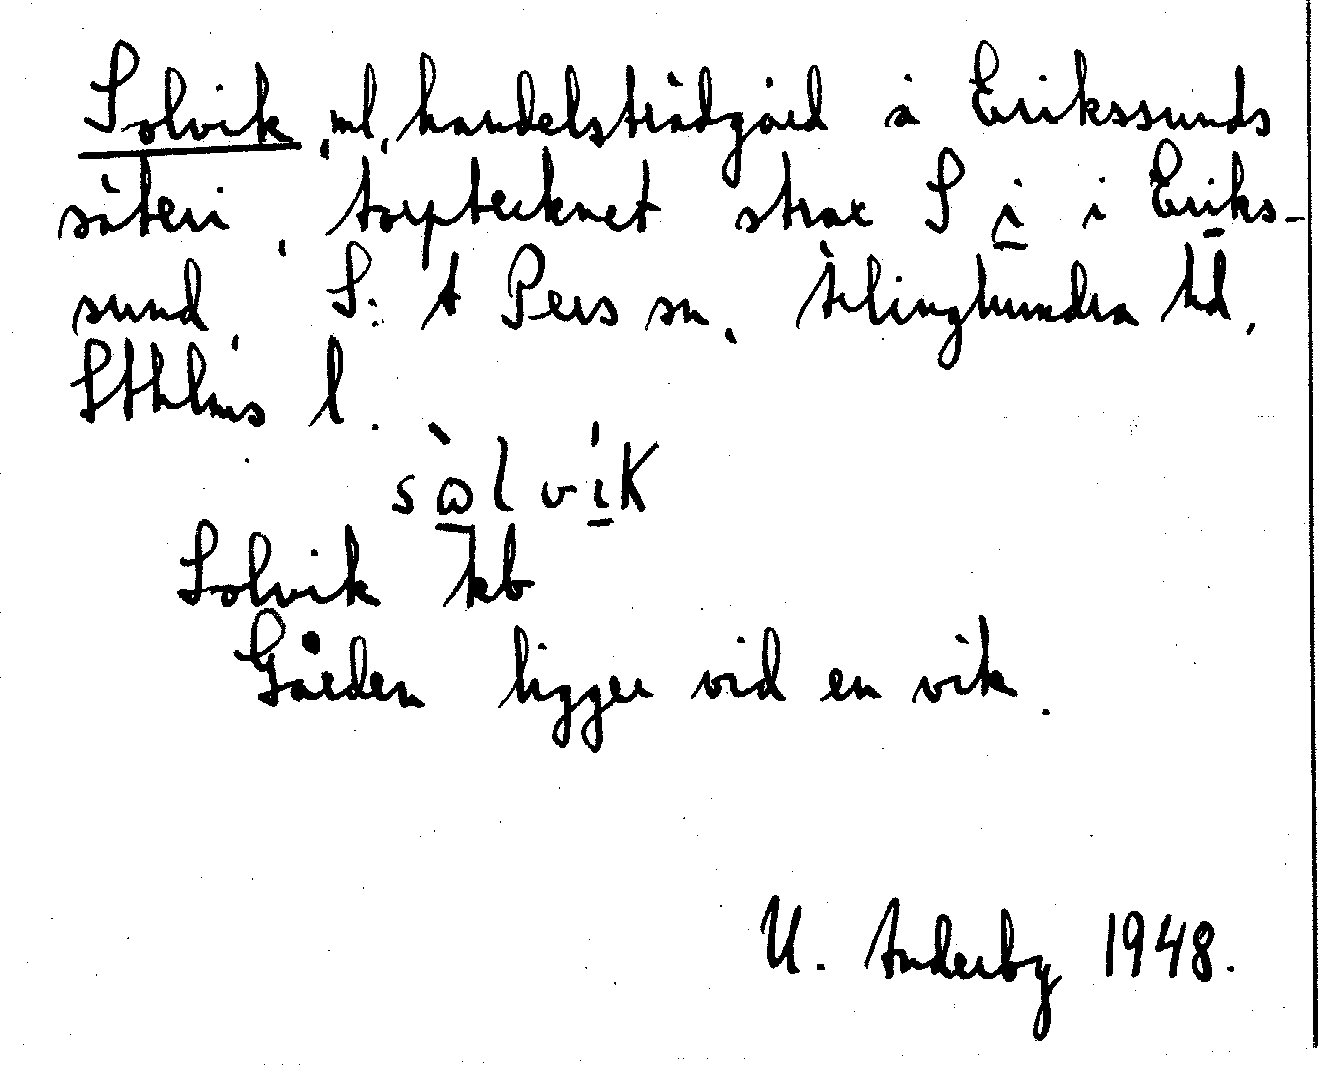 Solvik, ml, handelsträdgård å Erikssunds
säteri, torptecknet strax S i i Eriks-
sund, S:t Pers sn, Ärlinghundra hd,
Sthlms l.
sòlvík
Solvik kb
Gården ligger vid en vik.
U. Anderby 1948.